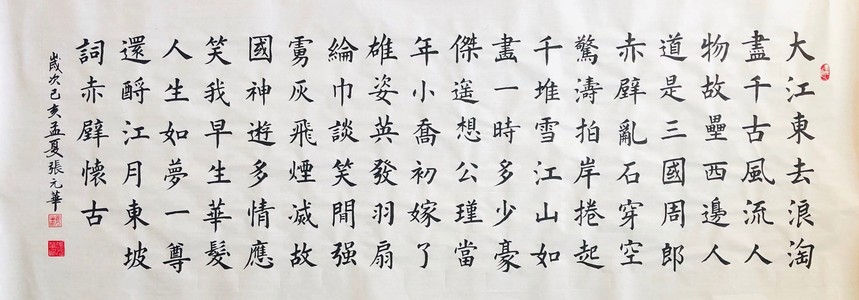 大江東去浪淘
盡千古風流人
物故壘西邊人
道是三國周郎
赤壁亂石穿空
驚濤拍岸捲起
千堆雪江山如
畫一時多少豪
傑遥想公瑾當
年小喬初嫁了
雄姿英發羽扇
綸巾談笑間强
虜灰飛煙滅故
國神遊多情應
笑我早生華髮
人生如夢一尊
還酹江月東坡
詞赤壁懷古
歲次己亥孟夏張元華